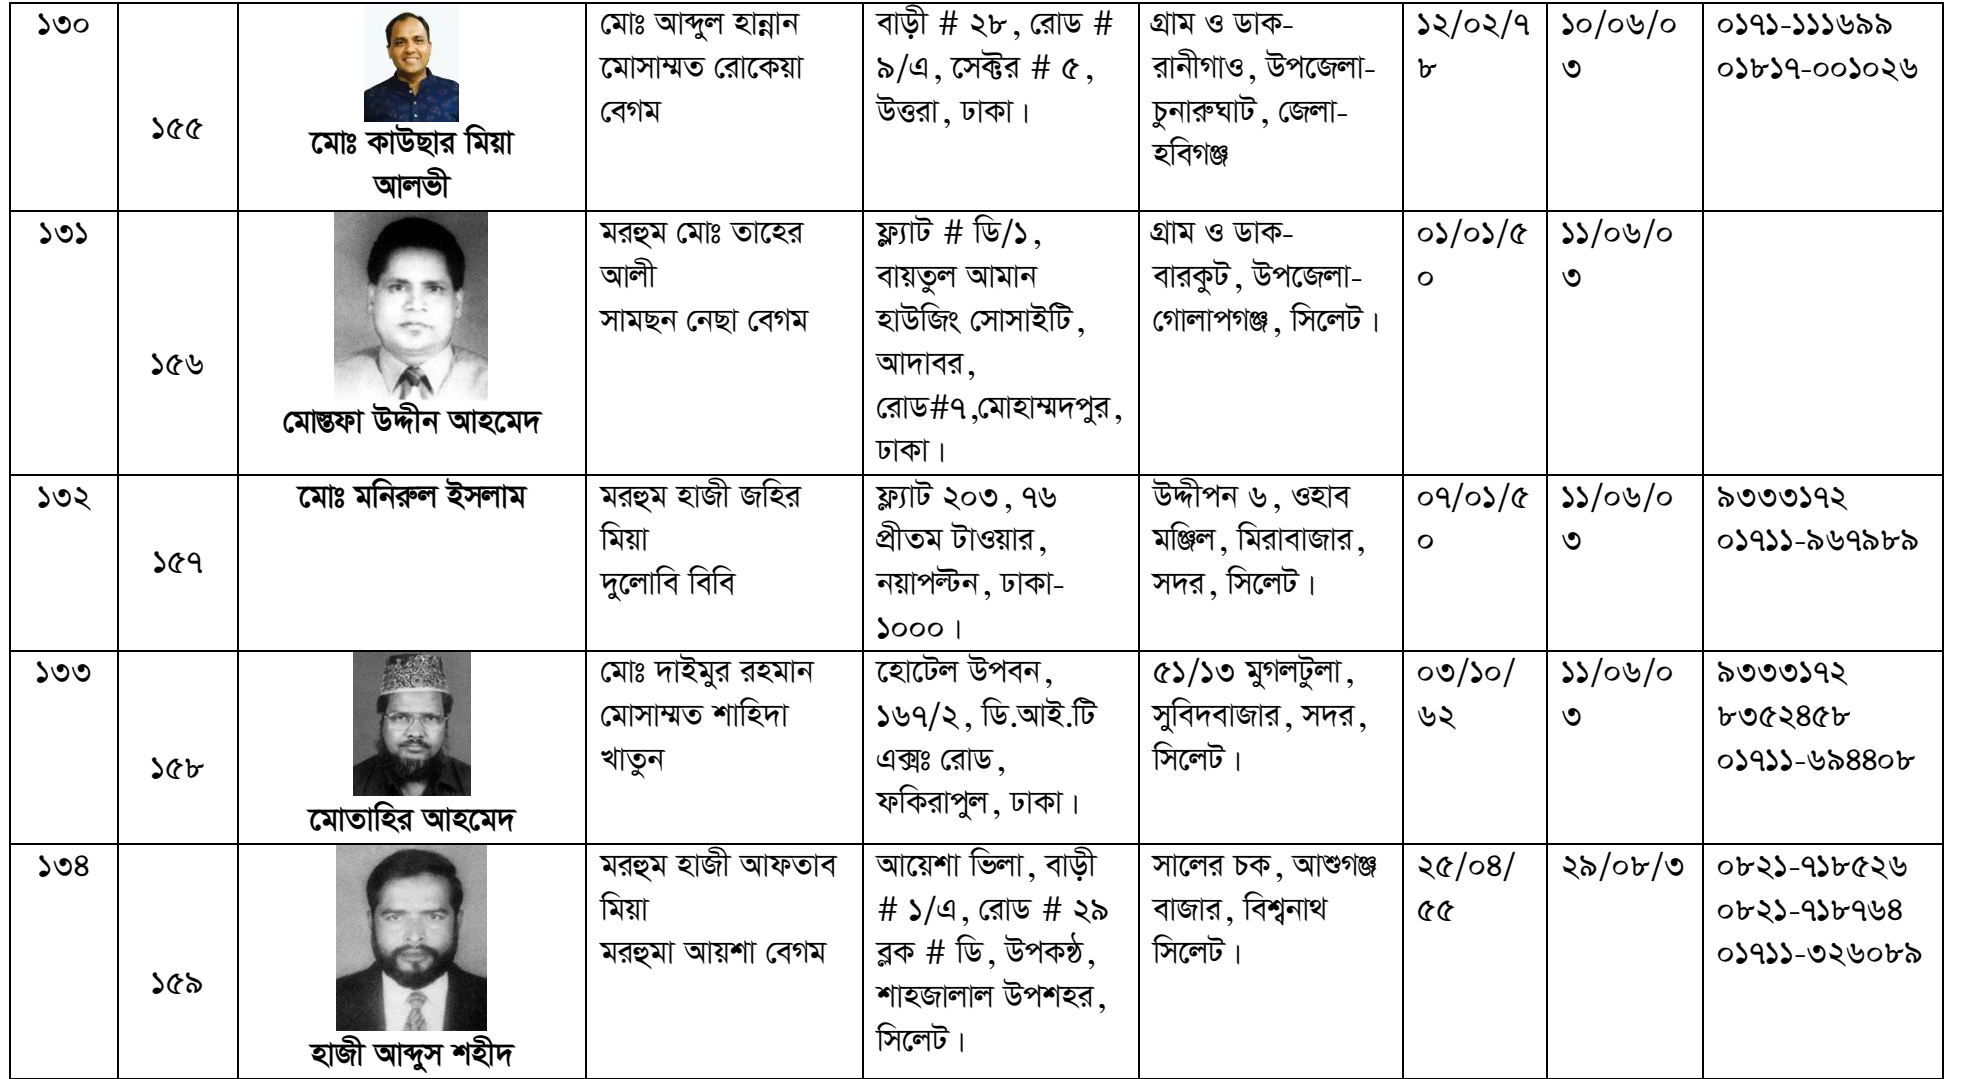 ১৩০
১৫৫
মোঃ কাউছার মিয়া
আলভী
মোঃ আব্দুল হান্নান
মোসাম্মত রোকেয়া
বেগম
বাড়ী # ২৮, রোড #
৯/এ, সেক্টর # ৫,
উত্তরা, ঢাকা।
গ্রাম ও ডাক-
রানীগাও, উপজেলা-
চুনারুঘাট, জেলা-
হবিগঞ্জ
১২/০২/৭
৮
১০/০৬/০
৩
০১৭১-১১১৬৯৯
০১৮১৭-০০১০২৬
১৩১
১৫৬
মোস্তফা উদ্দীন আহমেদ
মরহুম মোঃ তাহের
আলী
সামছন নেছা বেগম
ফ্ল্যাট # ডি/১,
বায়তুল আমান
হাউজিং সোসাইটি,
আদাবর,
রোড#৭,মোহাম্মদপুর,
ঢাকা।
গ্রাম ও ডাক-
বারকুট, উপজেলা-
গোলাপগঞ্জ, সিলেট।
০১/০১/৫
০
১১/০৬/০
৩
১৩২
১৫৭
মোঃ মনিরুল ইসলাম
মরহুম হাজী জহির
মিয়া
দুলোবি বিবি
ফ্ল্যাট ২০৩, ৭৬
প্রীতম টাওয়ার,
নয়াপল্টন, ঢাকা-
১০০০।
উদ্দীপন ৬, ওহাব
মঞ্জিল, মিরাবাজার,
সদর, সিলেট।
০৭/০১/৫
০
১১/০৬/০
৩
৯৩৩৩১৭২
০১৭১১-৯৬৭৯৮৯
১৩৩
১৫৮
মোতাহির আহমেদ
মোঃ দাইমুর রহমান
মোসাম্মত শাহিদা
খাতুন
হোটেল উপবন,
১৬৭/২, ডি.আই.টি
এক্সঃ রোড,
ফকিরাপুল, ঢাকা।
৫১/১৩ মুগলটুলা,
সুবিদবাজার, সদর,
সিলেট।
০৩/১০/
৬২
১১/০৬/০
৩
৯৩৩৩১৭২
৮৩৫২৪৫৮
০১৭১১-৬৯৪৪০৮
১৩৪
১৫৯
হাজী আব্দুস শহীদ
মরহুম হাজী আফতাব
মিয়া
মরহুমা আয়শা বেগম
আয়েশা ভিলা, বাড়ী
# ১/এ, রোড # ২৯
ব্লক # ডি, উপকন্ঠ,
শাহজালাল উপশহর,
সিলেট।
সালের চক, আশুগঞ্জ
বাজার, বিশ্বনাথ
সিলেট।
২৫/০৪/
৫৫
২৯/০৮/৩
০৮২১-৭১৮৫২৬
০৮২১-৭১৮৭৬৪
০১৭১১-৩২৬০৮৯